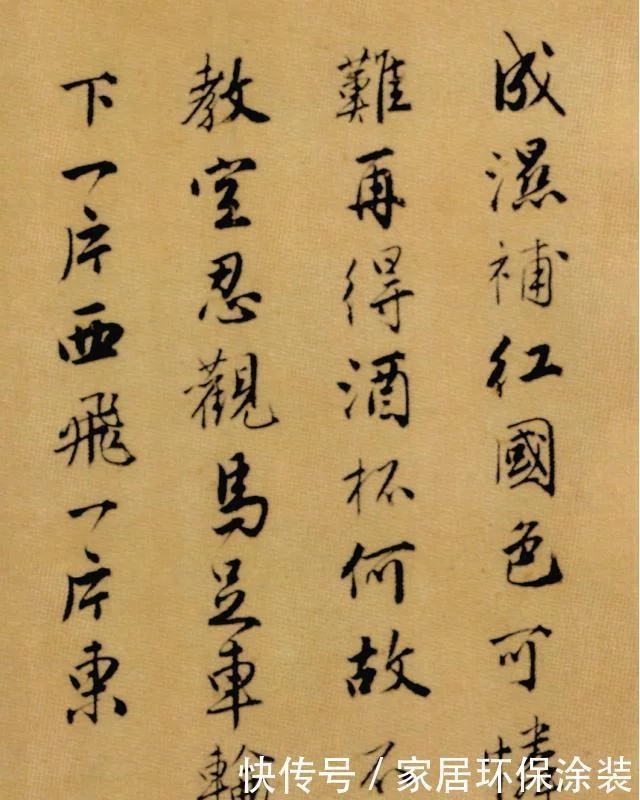 成濕補紅國色可憐
難再得酒杯何故不
教空忍觀馬足車輪
下一片西飛一片東
快传号 / 家居环保涂装